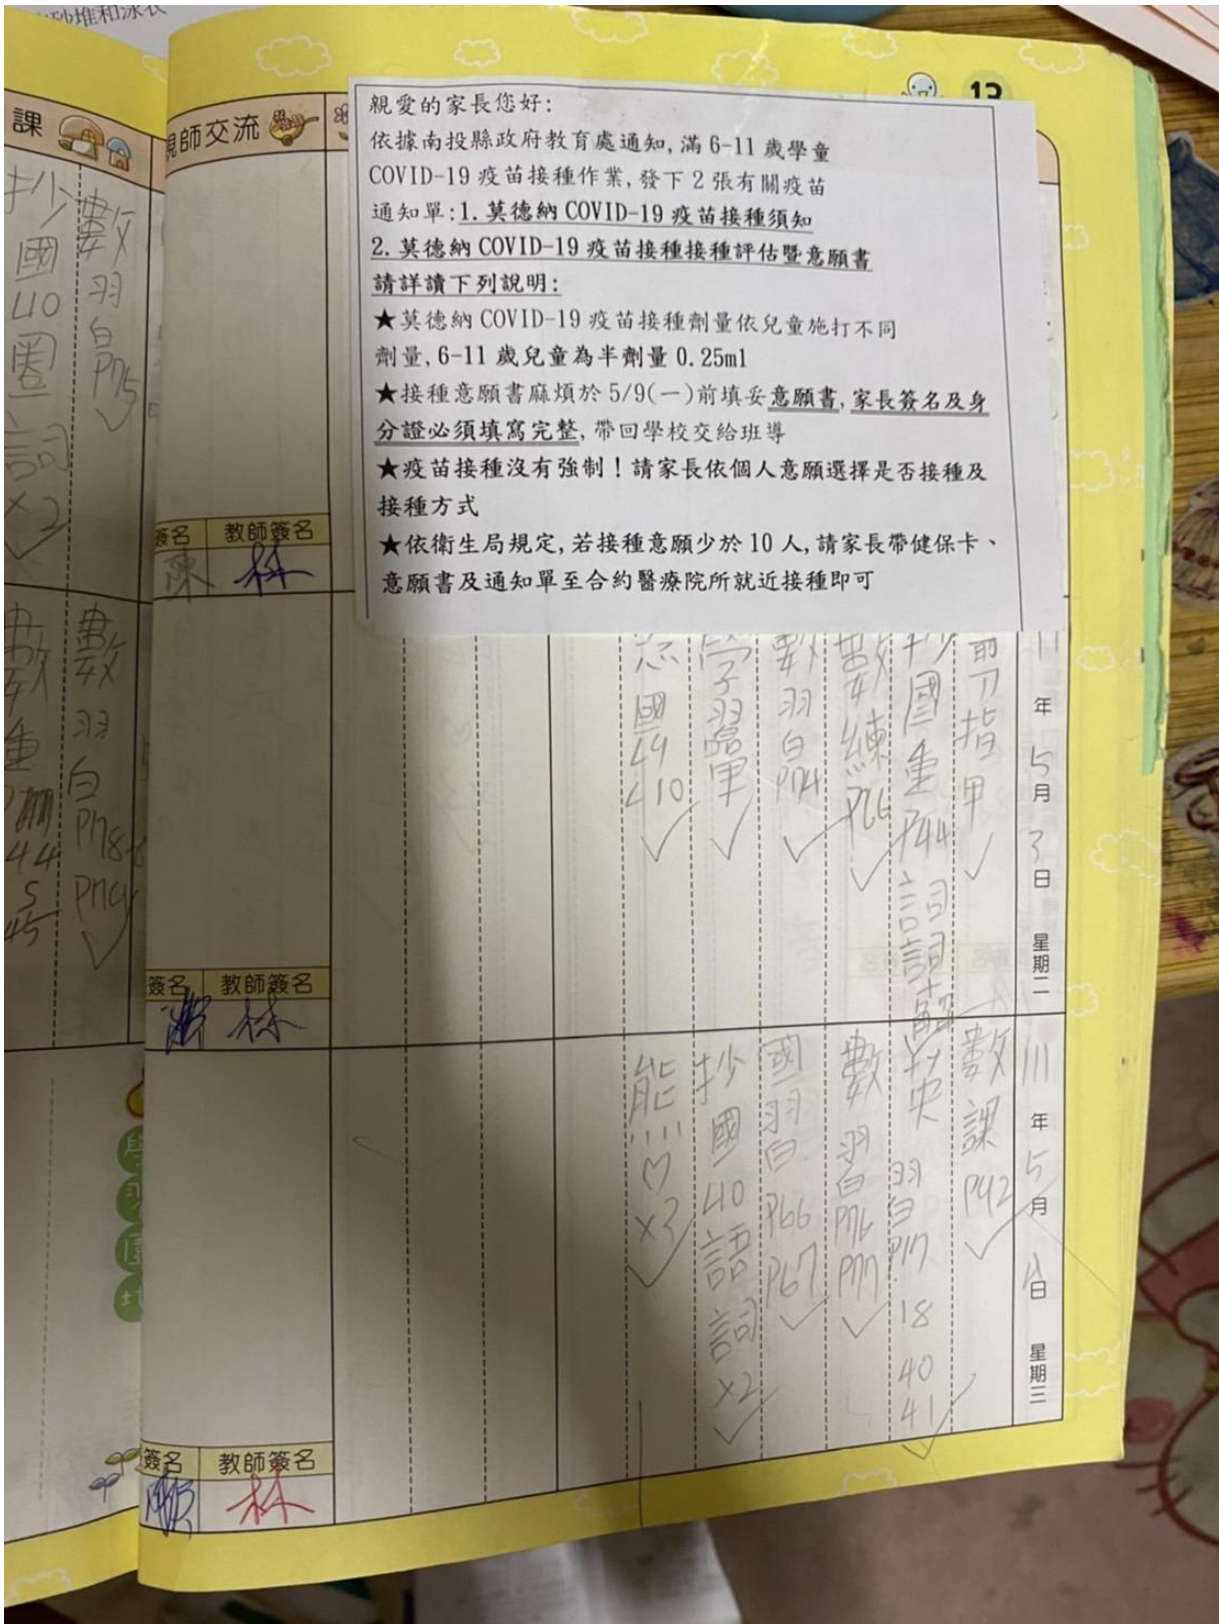 砂堆和泳衣
13
親師交流
親愛的家長您好:
依據南投縣政府教育處通知,滿 6-11 歲學童
COVID-19 疫苗接種作業,發下 2 張有關疫苗
通知單:1.莫德納 COVID-19 疫苗接種須知
2.莫德納 COVID-19 疫苗接種接種評估暨意願書
請詳讀下列說明:
★莫德納 COVID-19 疫苗接種劑量依兒童施打不同
劑量,6-11 歲兒童為半劑量 0.25ml
★接種意願書麻煩於 5/9(一)前填妥意願書,家長簽名及身
分證必須填寫完整,帶回學校交給班導
★疫苗接種沒有強制！請家長依個人意願選擇是否接種及
接種方式
★依衛生局規定,若接種意願少於 10 人,請家長帶健保卡、
意願書及通知單至合約醫療院所就近接種即可
簽名 教師簽名
陳 林
年5月3日 星期二
剪指甲
抄國重P44
數練P66
數習P74
學習單
簽名 教師簽名
林
111年5月4日 星期三
數課P42
英習P17 18 40 41
數習P76 P77
國習P66 P67
抄國40語詞×2
簽名 教師簽名
林
課
數習P75
抄國40圈詞×2
數習P78
數重
44
45